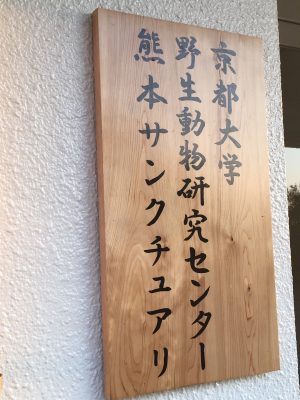 京都大学
野生動物研究センター
熊本サンクチュアリ